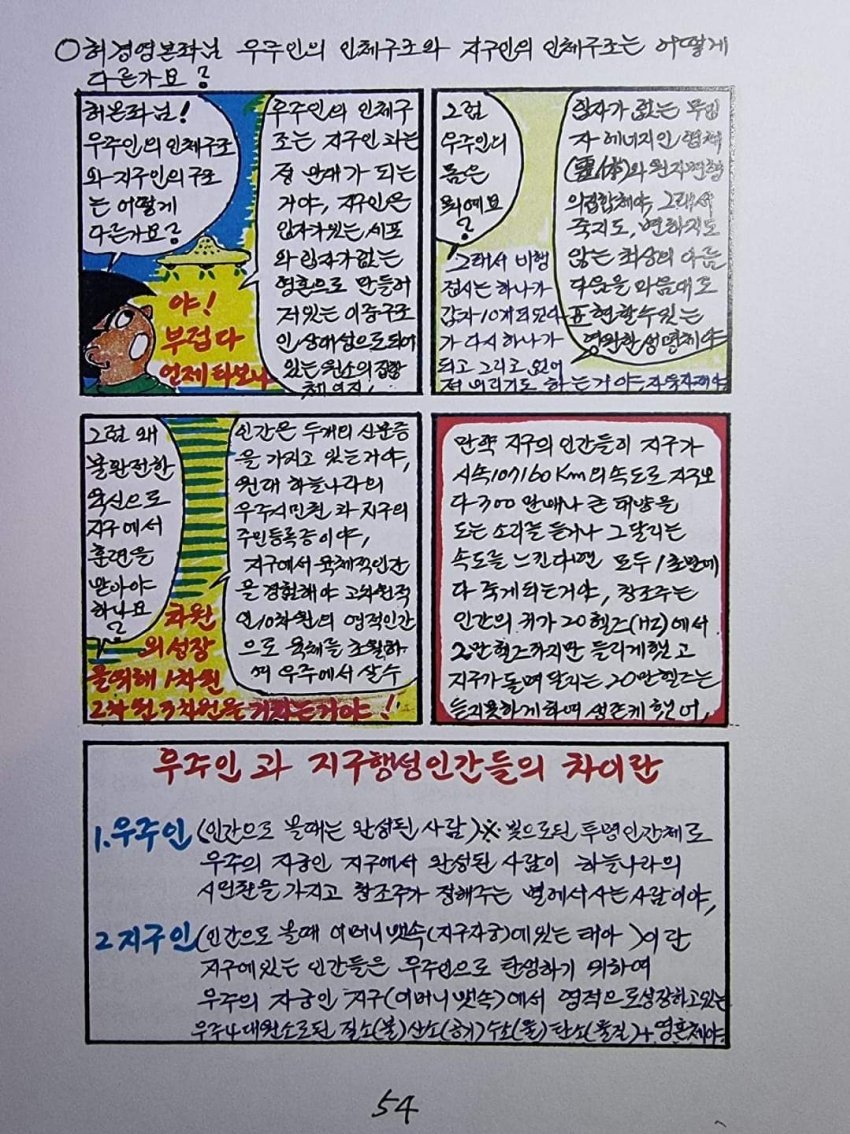 ○허경영본좌님 우주인의 인체구조와 지구인의 인체구조는 어떻게
다른가요?
허본좌님!
우주인의 인체구조
와 지구인의 구조
는 어떻게
다른가요?
야!
부럽다
언제 타보나
우주인의 인체구
조는 지구인 과는
정 반대가 되는
거야, 지구인은
입자가있는, 세포
와 입자가 없는
영혼으로 만들어
져있는 이중구조
인 상대성으로되어
있는 원소의 집합
체이지,
그럼
우주인의
몸은
뭐예요
?
입자가 없는 무입
자 에너지인 영체
(靈体)와
의집합체야, 그래서
죽지도, 변하지도
않는 최상의 아름
다움을 마음대로
표현할수있는
영원한 생명체야
그래서 비행
접시는 하나가
갑자기 10개 되었다
가 다시 하나가
되고 그리고 없어
져 버리기도 하는거야,
그럼 왜
불완전한
육신으로
지구에서
훈련을
받아야
하나요
?
인간은 두개의 신분증
을 가지고 있는거야,
원래 하늘나라의
우주시민권 과 지구의
주민등록증이야,
지구에서 육체적인간
을 경험해야 고차원적
인 10차원의 영적인간
으로 육체를 초월하
여 우주에서 살수
차원
의성장
을위해 1차원
2차원 3차원을 거치는거야!
만약 지구의 인간들이 지구가
시속107160Km의 속도로 지구보
다 300만배나 큰 태양을
도는 소리를 듣거나 그 달리는
속도를 느낀다면 모두 1초만에
다 죽게되는거야, 창조주는
인간의 귀가 20헬즈(HZ)에서
2만헬즈까지만 들리게했고
지구가 돌며 달리는 20만헬즈는
듣지못하게하여 생존케 했어,
우주인 과 지구행성인간들의 차이란
1.우주인 (인간으로 볼때는 완성된 사람)※빛으로된 투명인간체로
우주의 자궁인 지구에서 완성된 사람이 하늘나라의
시민권을 가지고 창조주가 정해주는 별에서 사는 사람이야,
2.지구인 (인간으로 볼때 어머니 뱃속(지구자궁)에있는 태아 )이란
지구에있는 인간들은 우주인으로 탄생하기 위하여
우주의 자궁인 지구(어머니뱃속)에서 영적으로성장하고있는
우주4대원소로된 질소(불)산소(공기)수소(물)탄소(물질)+영혼체야
54